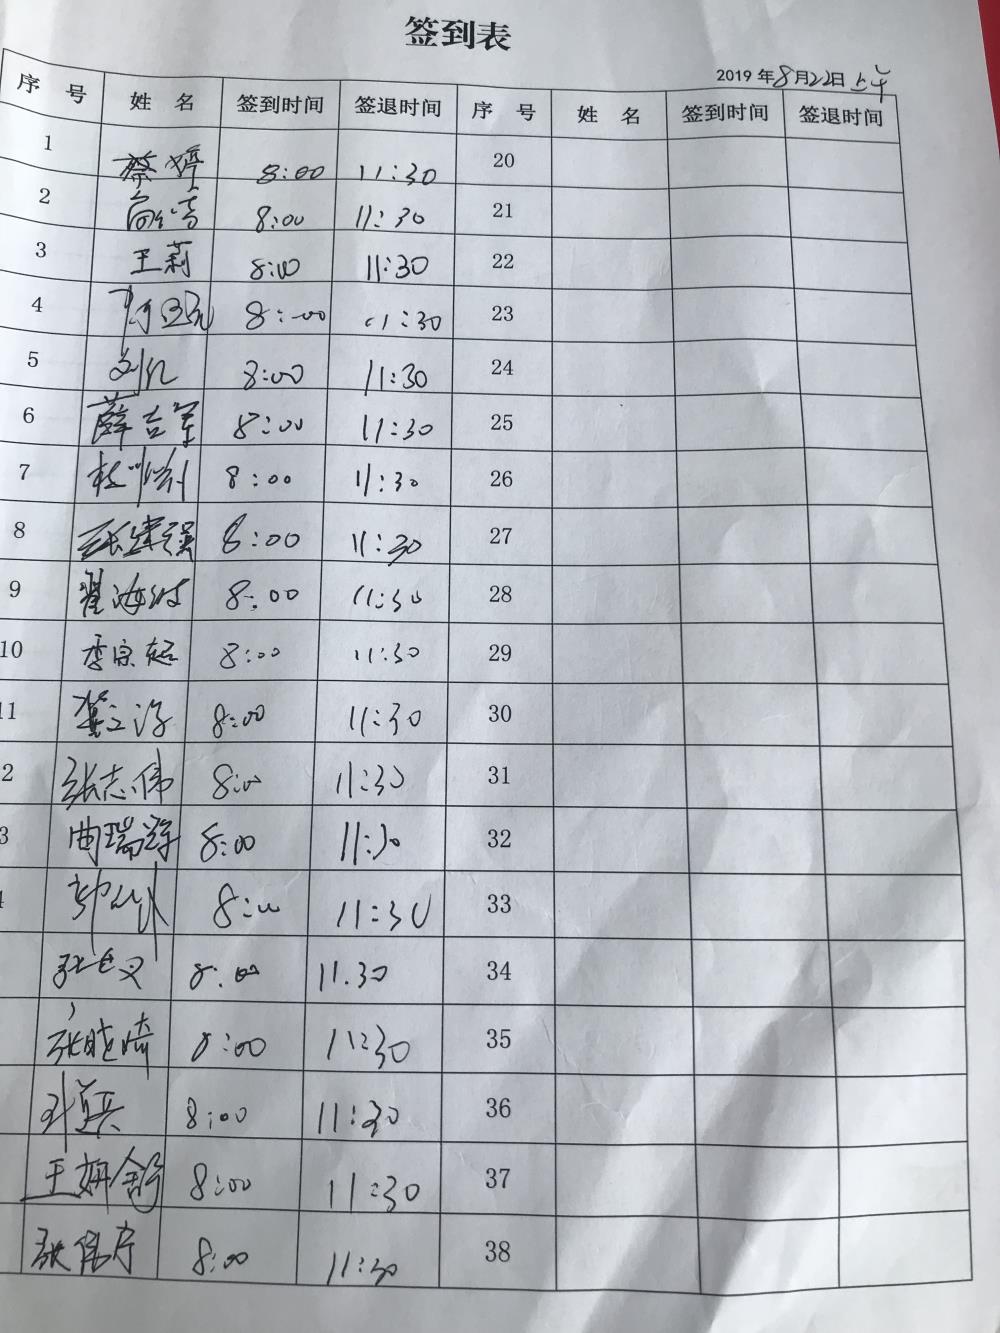 签到表
2019年8月22日上午
序 号 姓 名 签到时间 签退时间 序 号 姓 名 签到时间 签退时间
1 蔡婷 8:00 11:30 20
2 8:00 11:30 21
3 王莉 8:00 11:30 22
4 8:00 11:30 23
5 刘 8:00 11:30 24
6 薛吉军 8:00 11:30 25
7 8:00 11:30 26
8 张建强 8:00 11:30 27
9 翟海波 8:00 11:30 28
10 李宗超 8:00 11:30 29
11 8:00 11:30 30
2 张志伟 8:00 11:30 31
3 曲瑞 8:00 11:30 32
8:00 11:30 33
张 义 8:00 11.30 34
张晓琦 8:00 11:30 35
8:00 11:30 36
王妍舒 8:00 11:30 37
张 8:00 11:30 38